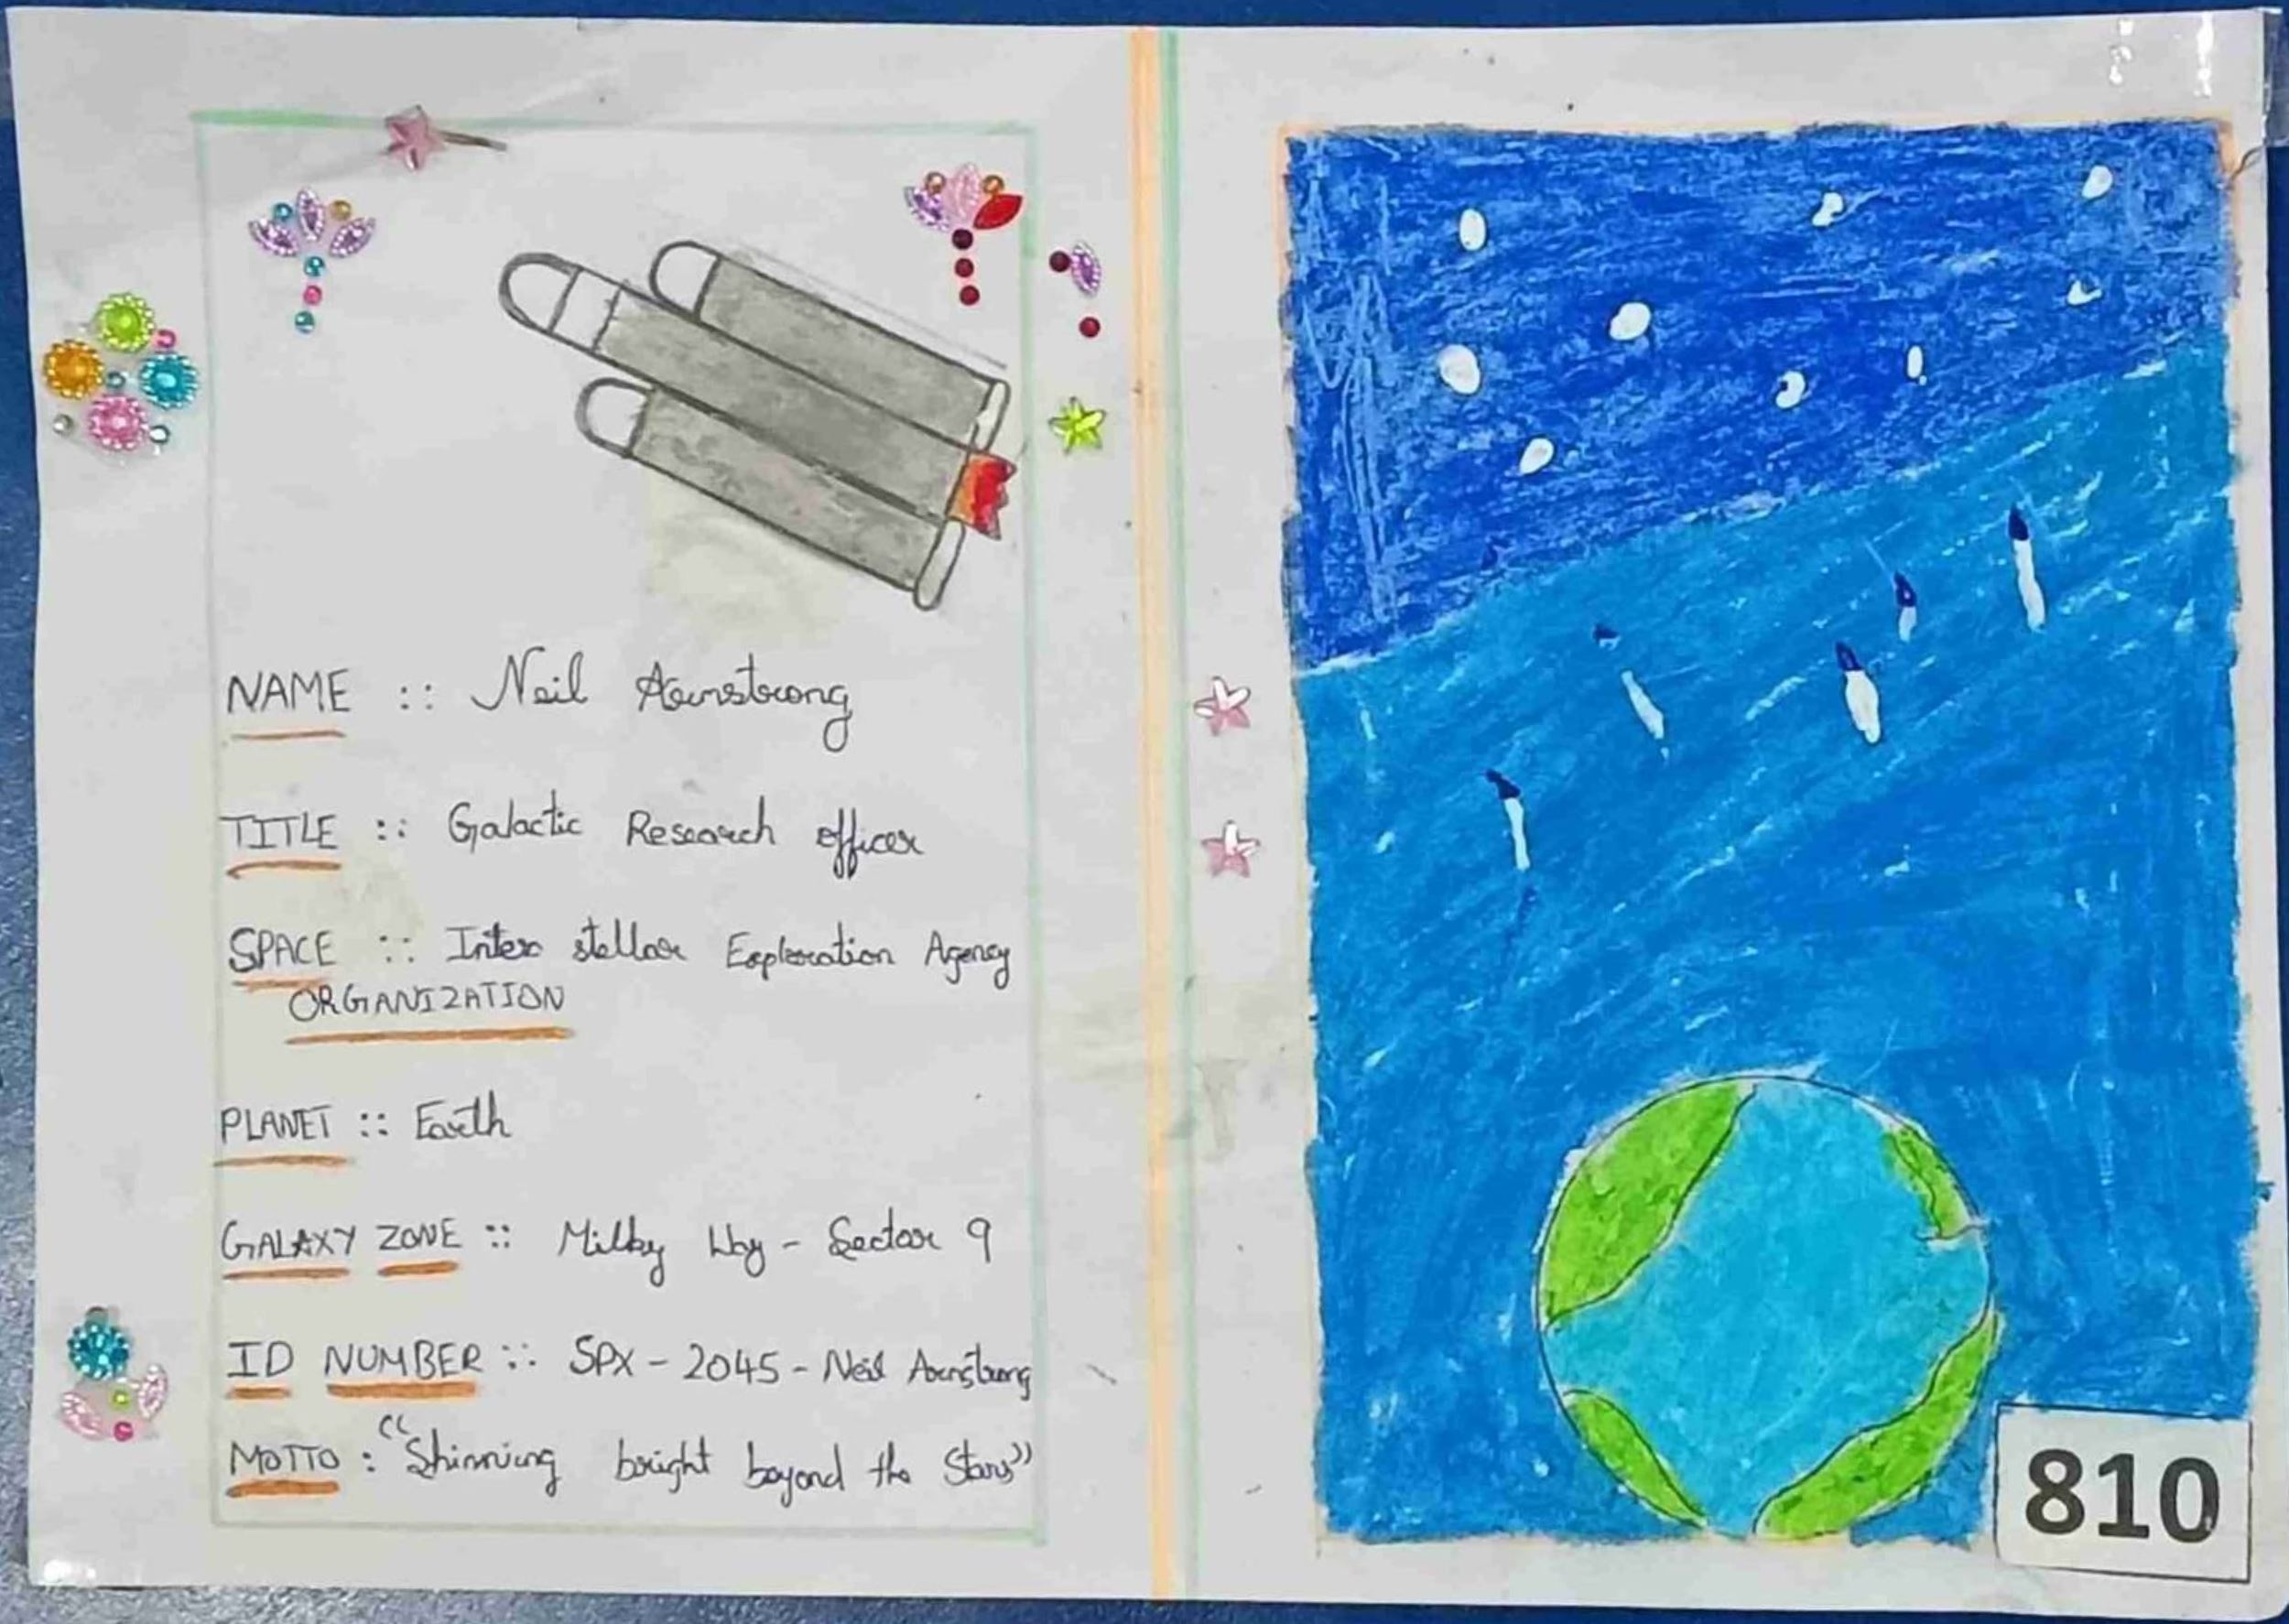 NAME :: Neil Armstrong
TITLE :: Galactic Research officer
SPACE :: Inter stellar Exploration Agency
ORGANIZATION
PLANET :: Earth
GALAXY ZONE :: Milky Way - Sector 9
ID NUMBER :: SPX - 2045 - Neil Armstrong
MOTTO : "Shinning bright beyond the Stars"
810